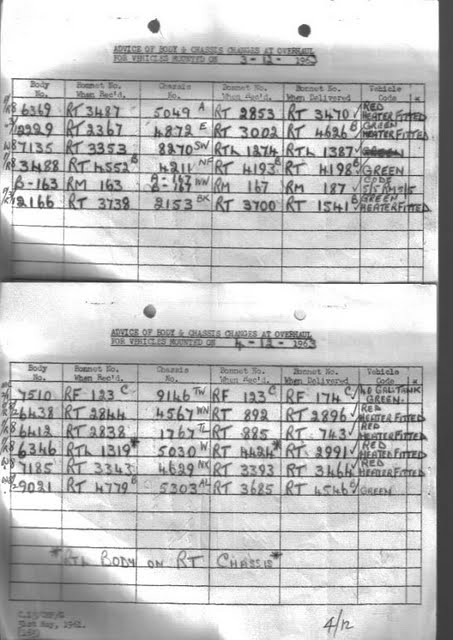 ADVICE OF BODY & CHASSIS CHANGES AT OVERHAUL
FOR VEHICLES MOUNTED ON 3-12-1963
Body No. Bonnet No. When Rec'd. Chassis No. Bonnet No. When Rec'd. Bonnet No. When Delivered Vehicle Code
6369 RT 3487 5049 A RT 2853 RT 3470 ✓ RED HEATER FITTED
2229 RT 2367 4872 E RT 3002 RT 4626 B ✓ GREEN HEATER FITTED
7135 RT 3353 8270 SW RTL 1274 RTL 1387 ✓ GREEN
3488 RT 4552 B 4211 NF RT 4193 B RT 4198 B ✓ GREEN
B-163 RM 163 WN RM 167 RM 187 ✓ CODE 5/5 RM 5/5
2166 RT 3738 2153 BK RT 3700 RT 1541 B ✓ GREEN HEATER FITTED
ADVICE OF BODY & CHASSIS CHANGES AT OVERHAUL
FOR VEHICLES MOUNTED ON 4-12-1963
Body No. Bonnet No. When Rec'd. Chassis No. Bonnet No. When Rec'd. Bonnet No. When Delivered Vehicle Code
7510 RF 123 C 9146 TW RF 123 C RF 174 C ✓ 40 GALL TANK GREEN
6438 RT 2844 4567 WN RT 892 RT 2896 ✓ RED HEATER FITTED
6412 RT 2838 1767 TL RT 885 RT 743 ✓ RED HEATER FITTED
6346 RTL 1319* 5030 N RT 4424* RT 2991 ✓ RED HEATER FITTED
7185 RT 3343 4629 NX RT 3393 RT 3464 ✓ RED HEATER FITTED
9021 RT 4779 B 5303 AL RT 3685 RT 4546 B ✓ GREEN
*RTL BODY ON RT CHASSIS*
31st May, 1961.
4/12